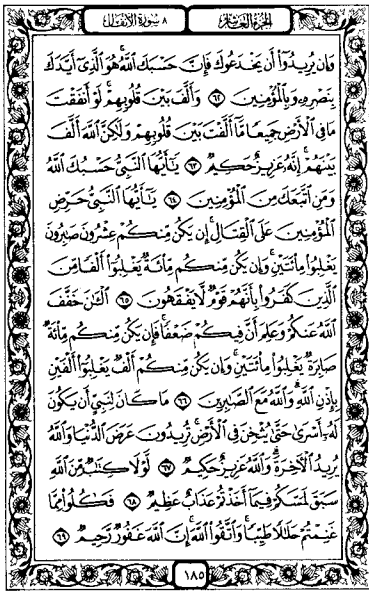 الجزء العاشر ٨ سورة الأنفال
وَإِن يُرِيدُوٓا۟ أَن يَخْدَعُوكَ فَإِنَّ حَسْبَكَ ٱللَّهُ ۚ هُوَ ٱلَّذِىٓ أَيَّدَكَ
بِنَصْرِهِۦ وَبِٱلْمُؤْمِنِينَ ٦٢ وَأَلَّفَ بَيْنَ قُلُوبِهِمْ ۚ لَوْ أَنفَقْتَ
مَا فِى ٱلْأَرْضِ جَمِيعًا مَّآ أَلَّفْتَ بَيْنَ قُلُوبِهِمْ وَلَٰكِنَّ ٱللَّهَ أَلَّفَ
بَيْنَهُمْ ۚ إِنَّهُۥ عَزِيزٌ حَكِيمٌ ٦٣ يَٰٓأَيُّهَا ٱلنَّبِىُّ حَسْبُكَ ٱللَّهُ
وَمَنِ ٱتَّبَعَكَ مِنَ ٱلْمُؤْمِنِينَ ٦٤ يَٰٓأَيُّهَا ٱلنَّبِىُّ حَرِّضِ
ٱلْمُؤْمِنِينَ عَلَى ٱلْقِتَالِ ۚ إِن يَكُن مِّنكُمْ عِشْرُونَ صَٰبِرُونَ
يَغْلِبُوا۟ مِا۟ئَتَيْنِ ۚ وَإِن يَكُن مِّنكُم مِّا۟ئَةٌ يَغْلِبُوٓا۟ أَلْفًا مِّنَ
ٱلَّذِينَ كَفَرُوا۟ بِأَنَّهُمْ قَوْمٌ لَّا يَفْقَهُونَ ٦٥ ٱلْـَٰٔنَ خَفَّفَ
ٱللَّهُ عَنكُمْ وَعَلِمَ أَنَّ فِيكُمْ ضَعْفًا ۚ فَإِن يَكُن مِّنكُم مِّا۟ئَةٌ
صَابِرَةٌ يَغْلِبُوا۟ مِا۟ئَتَيْنِ ۚ وَإِن يَكُن مِّنكُمْ أَلْفٌ يَغْلِبُوٓا۟ أَلْفَيْنِ
بِإِذْنِ ٱللَّهِ ۗ وَٱللَّهُ مَعَ ٱلصَّٰبِرِينَ ٦٦ مَا كَانَ لِنَبِىٍّ أَن يَكُونَ
لَهُۥٓ أَسْرَىٰ حَتَّىٰ يُثْخِنَ فِى ٱلْأَرْضِ ۚ تُرِيدُونَ عَرَضَ ٱلدُّنْيَا وَٱللَّهُ
يُرِيدُ ٱلْـَٔاخِرَةَ ۗ وَٱللَّهُ عَزِيزٌ حَكِيمٌ ٦٧ لَّوْلَا كِتَٰبٌ مِّنَ ٱللَّهِ
سَبَقَ لَمَسَّكُمْ فِيمَآ أَخَذْتُمْ عَذَابٌ عَظِيمٌ ٦٨ فَكُلُوا۟ مِمَّا
غَنِمْتُمْ حَلَٰلًا طَيِّبًا ۚ وَٱتَّقُوا۟ ٱللَّهَ ۚ إِنَّ ٱللَّهَ غَفُورٌ رَّحِيمٌ ٦٩
١٨٥